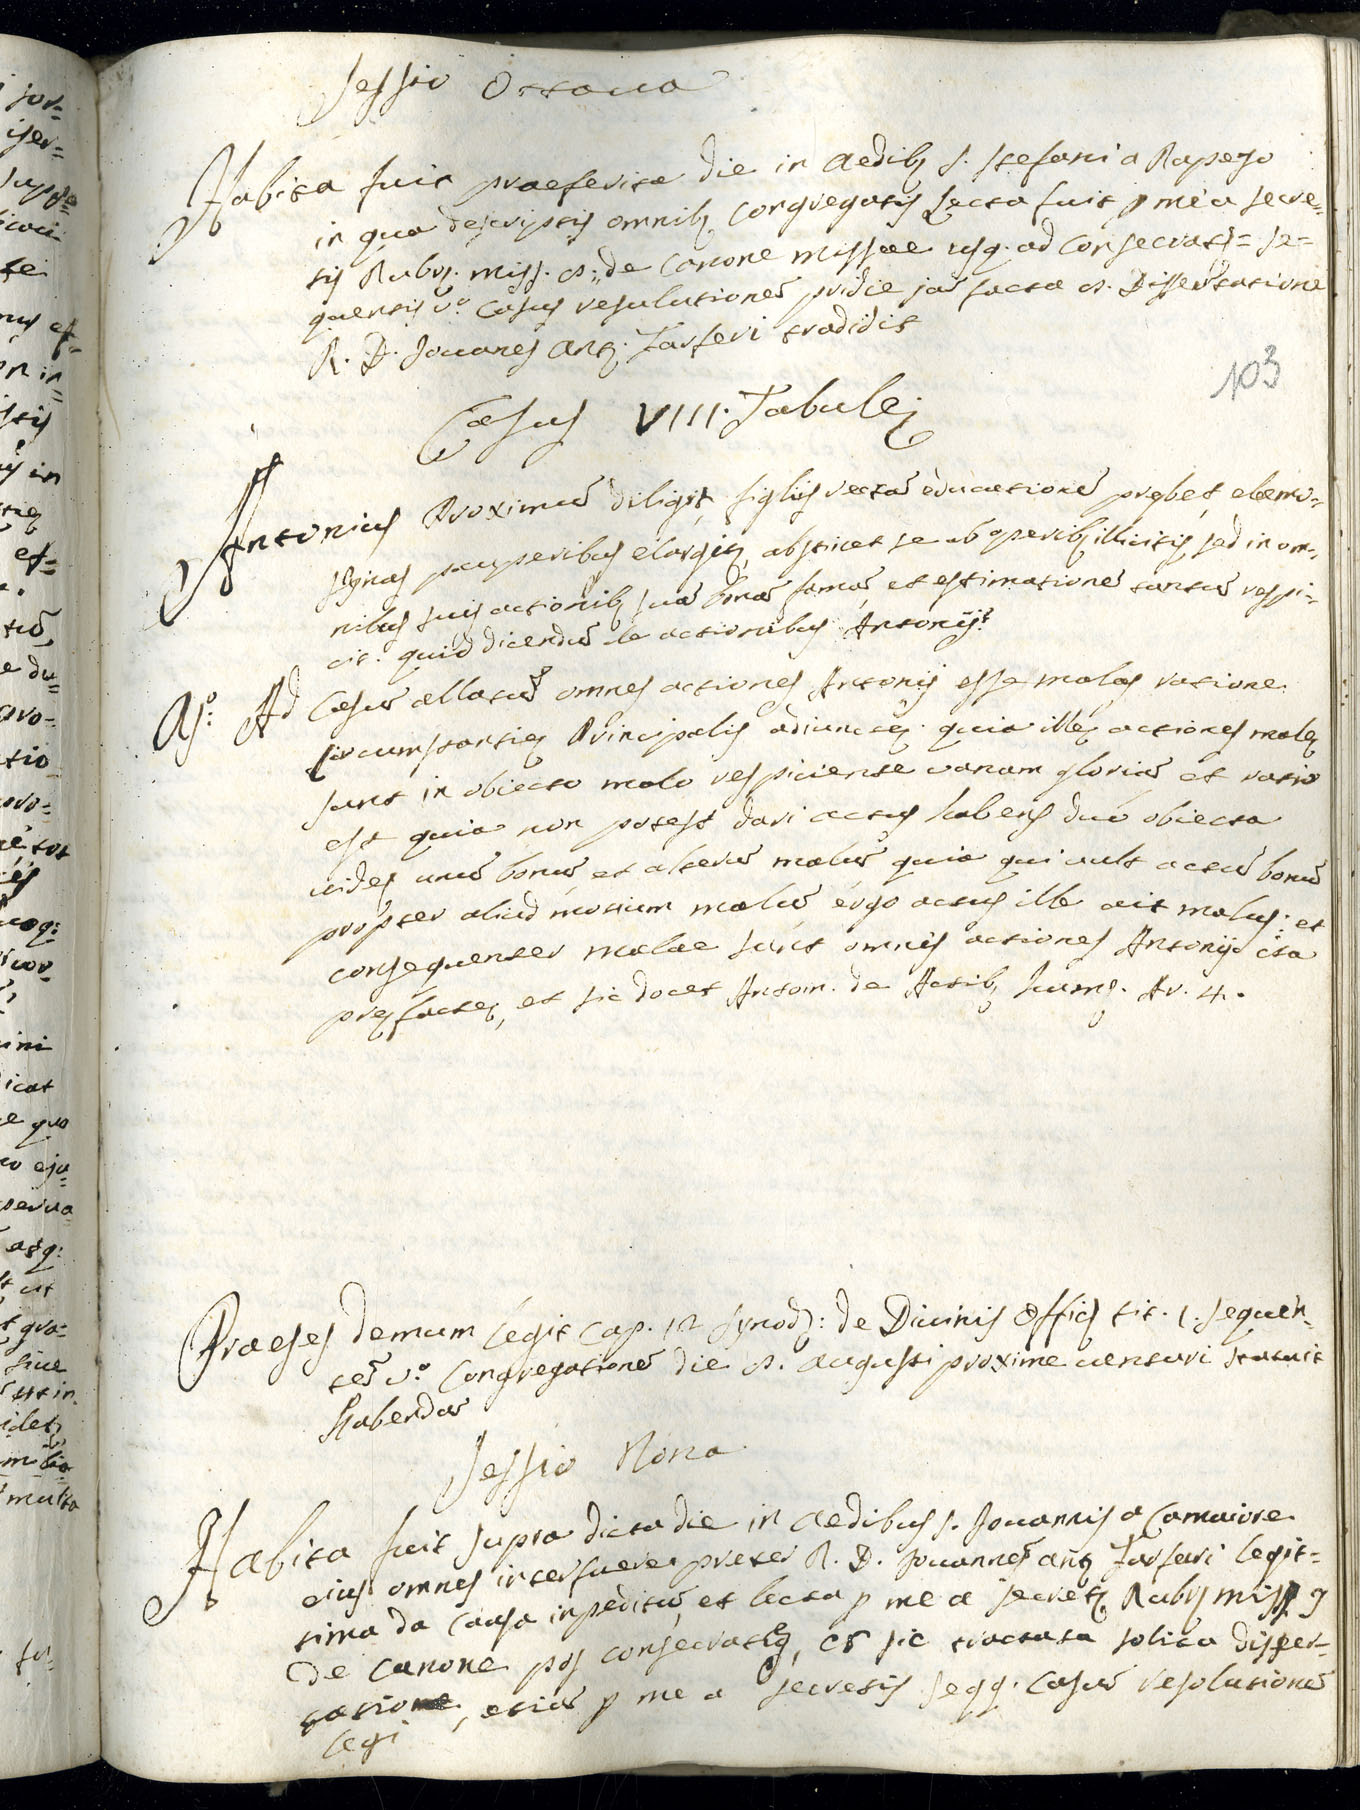 Sessio Ottava
Habita fuit praeferita die in Aedibꝫ S. Stefani a Rapezo
in qua descriptis omnibꝫ congregatis Lecta fuit p me a secre=
tis Rubr. Miss. 8: de Canone Missae usq. ad Consecrat= Se=
quentis v.º Casus resolutionē pridie jā facta 8. Dissertatione
R. D. Jovanes Ant. Tarferi tradidit
103
Casus VIII. Tabulę
Antonius Proximū diligit, figlijs rectā educationē prębet, elemo=
synas pauperibus elargitꝫ, abstinet se ab operibꝫ illicitis, sed in om=
nibus suis actionibꝫ suā bonā famā et estimationē tantū respi=
cit. quid dicendū de actionibus Antonij?
Rs: Ad Casum allatū omnes actiones Antonij esse malas ratione
circumstantię Principalis adiunctę. quia illę actiones malę
sunt in obiecto malo respiciente vanam gloriā et ratio
est quia non potest dari actus habens duo obiecta
videꝫ unū bonū, et alterū malū quia qui vult actū bonū
propter aliud motium malū, ergo actus ille erit malus: et
consequenter malae sunt omnis actiones Antonij ita
pręfactę, et sic docet Antoin. de Actibꝫ humꝫ. Ar. 4.
Praeses demum legit cap. 12 Synodꝫ: de Divinis Officis tit. 1. sequen=
tē v.º Congregationē die 8. Augusti proxime venturi statuit
habendā
Sessio Nona
Habita fuit supra dicta die in aedibus S. Jovannis a Camaiore
cius omnes interfuere preter R. D. Jovannē Antꝫ Tarfari legit=
tima da causa inpeditū, et lecta p me a secretꝫ. Rubꝫ miss 9
de canone pos consecratię, et sic tractata solita disser=
tatione, etiā p me a secretis seqq. Casū resolutionē
legi